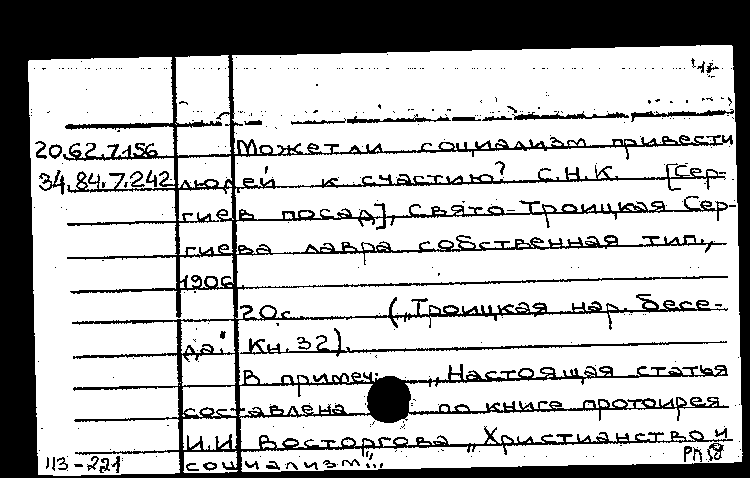 20.62.7.156 Может ли социализм привести
34.84.7.242 людей к счастию? С.Н.К. [Сер-
гиев посад], Свято-Троицкая Сер-
гиева лавра собственная тип.,
1906.
20с. („Троицкая нар. бесе-
да." Кн. 32).
В примеч: „Настоящая статья
составлена по книге протоиерея
И.И. Восторгова „Христианство и
социализм".
113-221